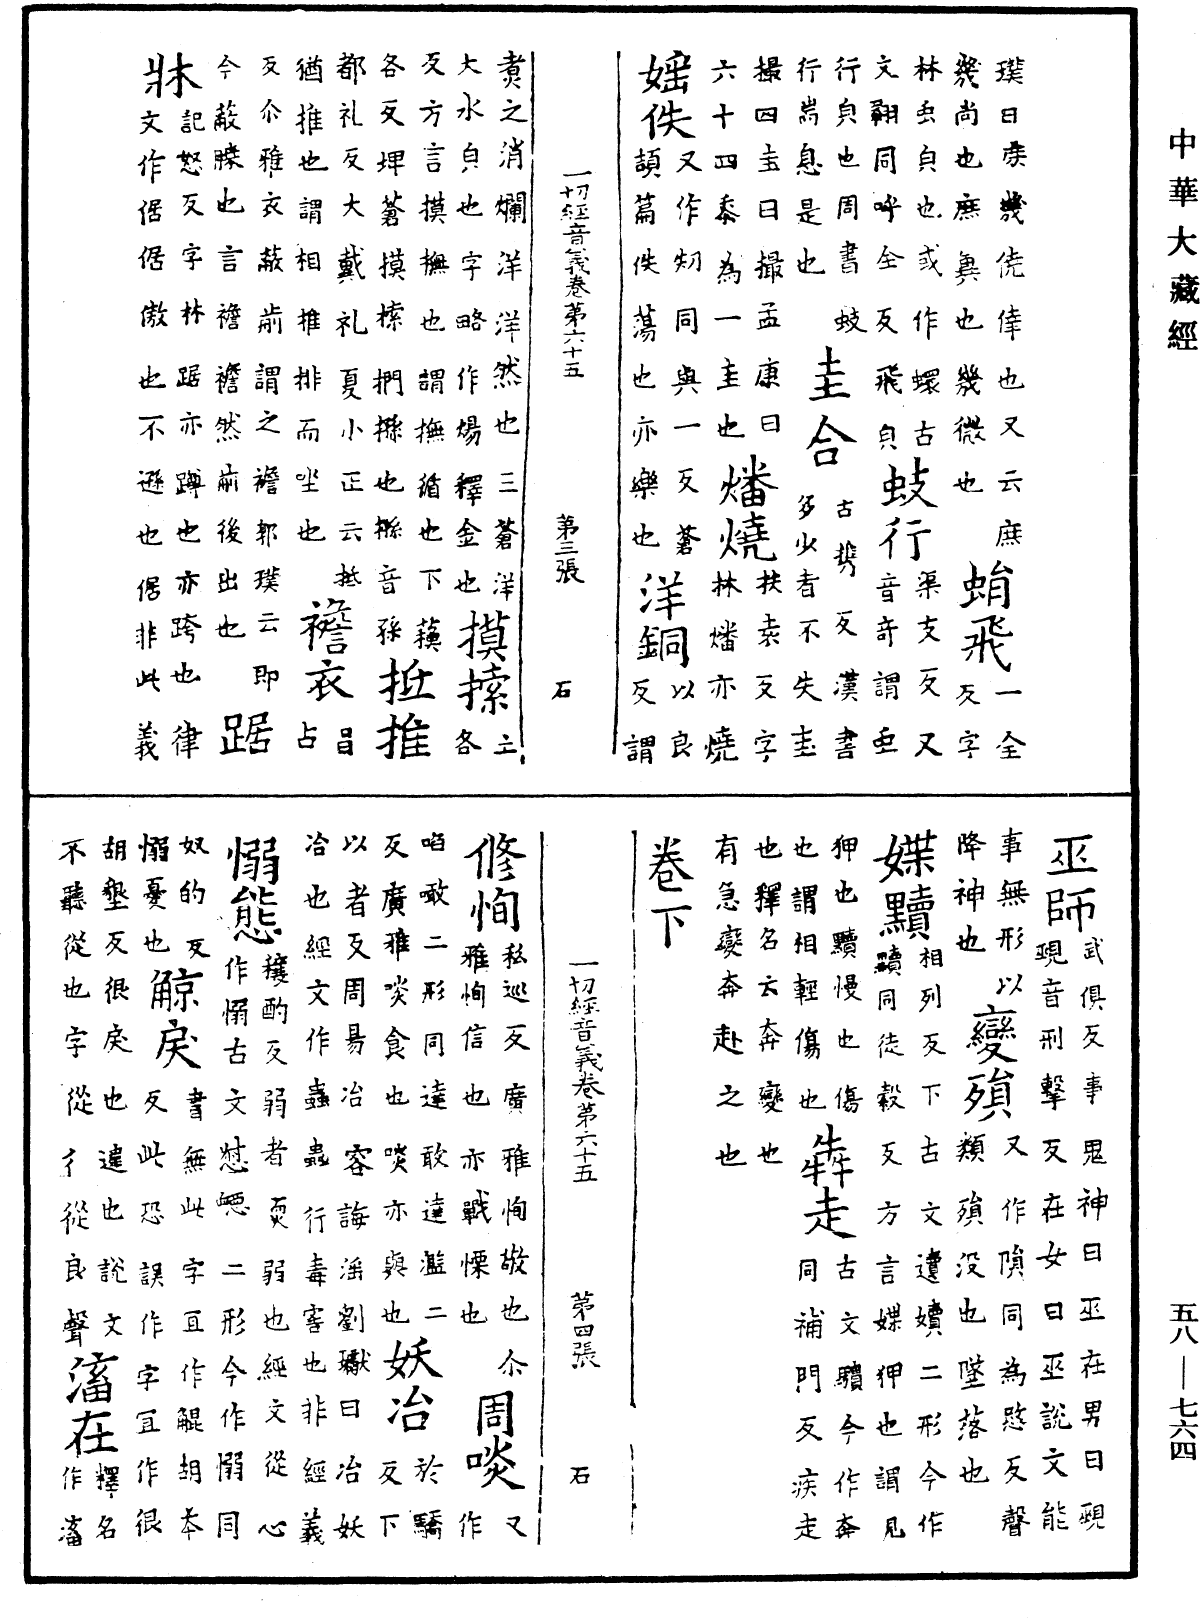 中華大藏經
璞曰庶幾僥倖也又云庶
幾尚也庶兾也幾微也蜎飛一全反字
林虫皃也或作蠉古文翾同呼全反飛皃蚑行渠支反又音奇謂虫
行皃也周書蚑行喘息是也圭合古攜反漢書多少者不失圭
撮四圭曰撮孟康曰六十四黍為一圭也燔燒扶袁反字林燔亦燒
媱佚又作劮同與一反蒼頡篇佚蕩也亦樂也洋銅以良反謂
一切經音義卷第六十五　第三張　石
煑之消爛洋洋然也三蒼洋
大水皃也字略作煬釋金也摸𢱢亡各
反方言摸撫也謂撫循也下蘓
各反埤蒼摸𢱢捫搎也搎音孫抵推
都礼反大戴礼夏小正云抵
猶推也謂相推排而坐也襜衣昌占
反尒雅衣蔽前謂之襜郭璞云即
今蔽膝也言襜襜然前後出也踞
牀記恕反字林踞亦蹲也亦跨也律
文作倨倨傲也不遜也倨非此義
巫師武俱反事鬼神曰巫在男曰覡
覡音刑擊反在女曰巫說文能
事無形以
降神也變殞又作隕同為愍反聲類殞没也墜落也
媟黷相列反下古文遺嬻二形今作黷同徒穀反方言媟狎也謂見
狎也黷慢也傷也謂相輕傷也犇走古文驞今作奔同補門反疾走
也釋名云奔變也
有急變奔赴之也
卷下
一切經音義卷第六十五　第四張　石
脩恂私巡反廣雅恂敬也尒雅恂信也亦戰慄也周啖又作
啗噉二形同達敢達濫二
反廣雅啖食也啖亦與也妖冶於驕反下
以者反周易冶容誨滛劉瓛曰冶妖
冶也經文作蠱蠱行毒害也非經義
愵態穰酌反弱者耎弱也經文從心作愵古文惄㥾二形今作愵同
奴的反
愵憂也䱯戾書無此字宜作鯤胡本反此恐誤作字宜作很
胡墾反很戾也違也說文
不聽從也字從彳從艮聲㵖在釋名作㵖
五八——七六四